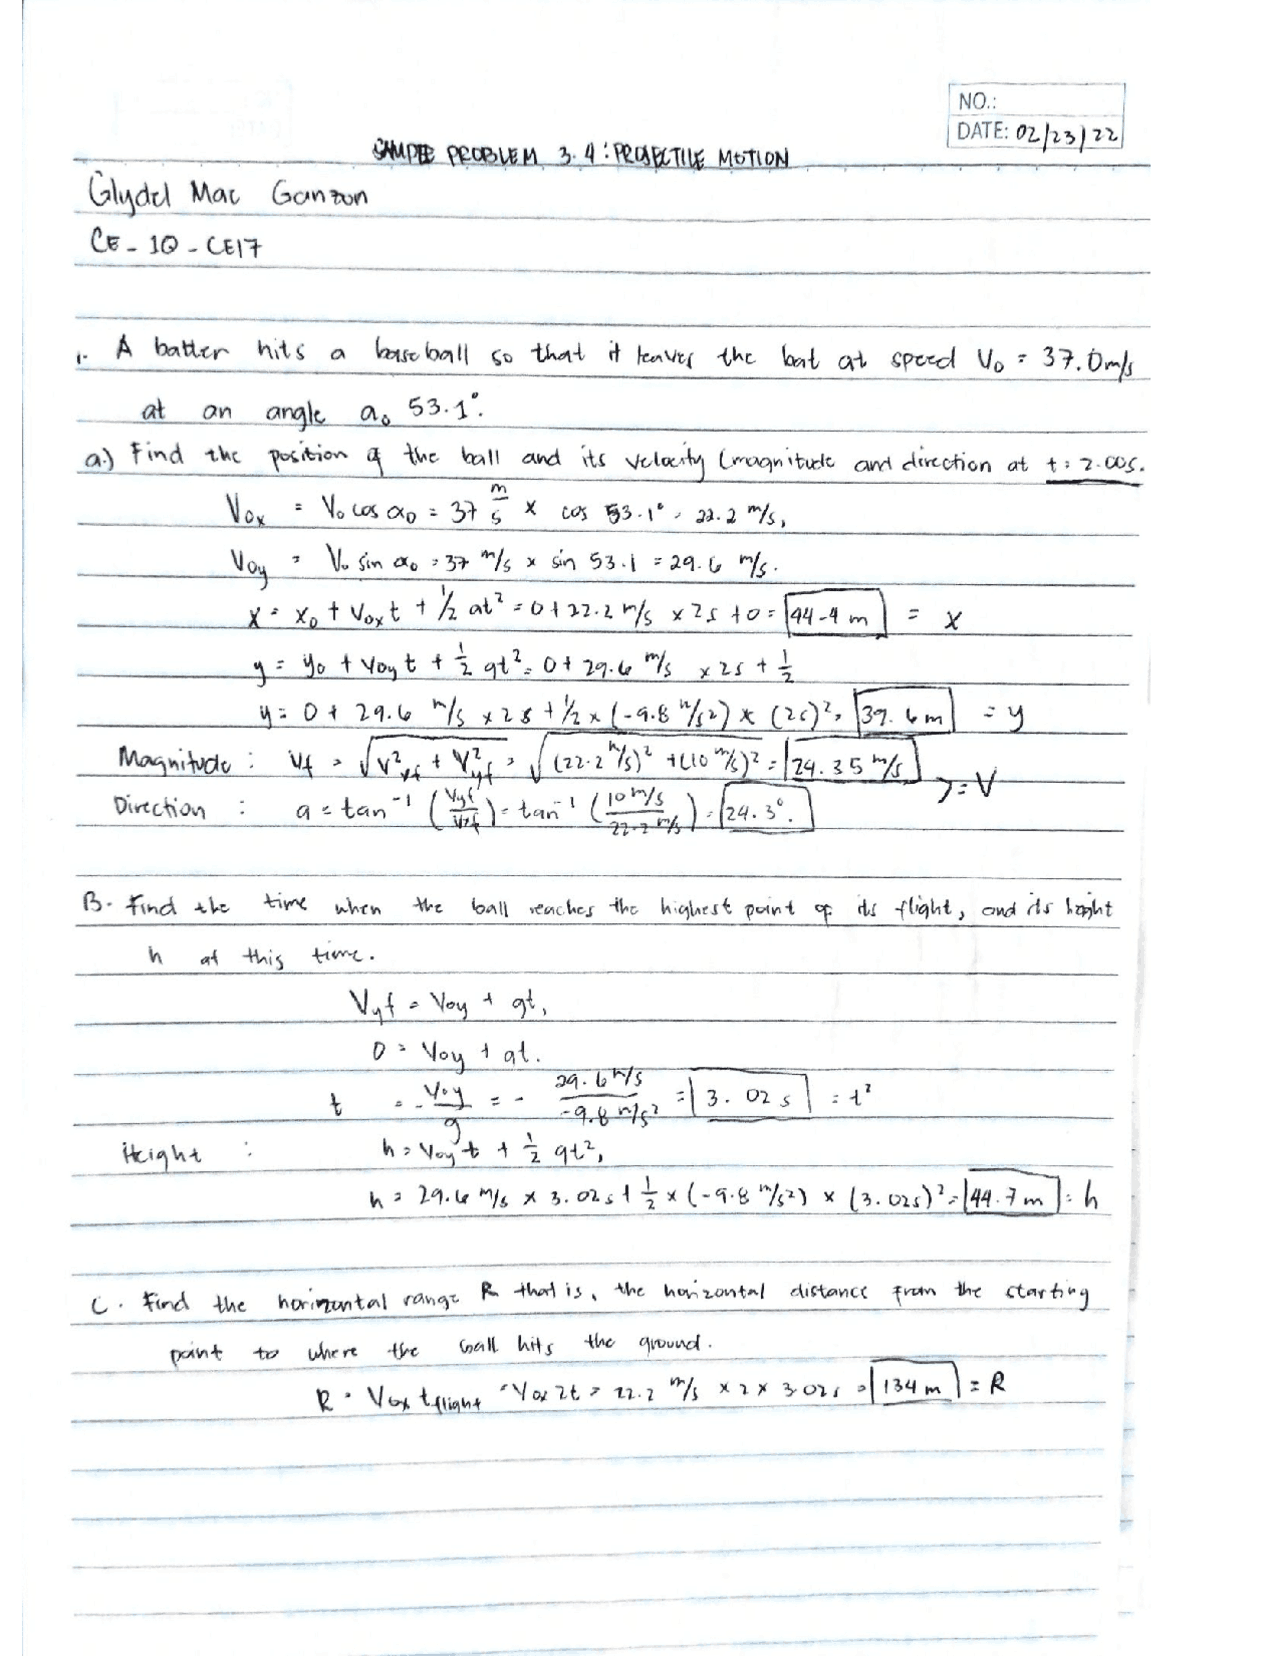 NO.:
DATE: 02/23/22
SAMPLE PROBLEM 3.4: PROJECTILE MOTION
Glydel Mac Ganzon
CE - 1Q - CE17
1. A batter hits a baseball so that it leaves the bat at speed V₀ = 37.0 m/s
at an angle a₀ 53.1°.
a.) Find the position of the ball and its velocity (magnitude and direction at t = 2.00s.
V₀ₓ = V₀ cos α₀ = 37 m/s × cos 53.1° = 22.2 m/s,
V₀y = V₀ sin α₀ = 37 m/s × sin 53.1 = 29.6 m/s.
x = x₀ + V₀ₓt + 1/2 at² = 0 + 22.2 m/s × 2s + 0 = 44.4 m = x
y = y₀ + V₀y t + 1/2 gt² = 0 + 29.6 m/s × 2s + 1/2
y = 0 + 29.6 m/s × 2s + 1/2 × (-9.8 m/s²) × (2s)² = 39.6 m = y
Magnitude : Vf = √(V²xf + V²yf) = √((22.2 m/s)² + (10 m/s)²) = 24.35 m/s
Direction : a = tan⁻¹ (Vyf/Vxf) = tan⁻¹ (10 m/s / 22.2 m/s) = 24.3°. } = V
B. Find the time when the ball reaches the highest point of its flight, and its height
h at this time.
Vyf = V₀y + gt,
0 = V₀y + gt.
t = - V₀y/g = - 29.6 m/s / -9.8 m/s² = 3.02 s = t²
Height : h = V₀y t + 1/2 gt²,
h = 29.6 m/s × 3.02 s + 1/2 × (-9.8 m/s²) × (3.02s)² = 44.7 m = h
C. Find the horizontal range R that is, the horizontal distance from the starting
point to where the ball hits the ground.
R = V₀ₓ tflight = V₀ₓ 2t = 22.2 m/s × 2 × 3.02s = 134 m = R